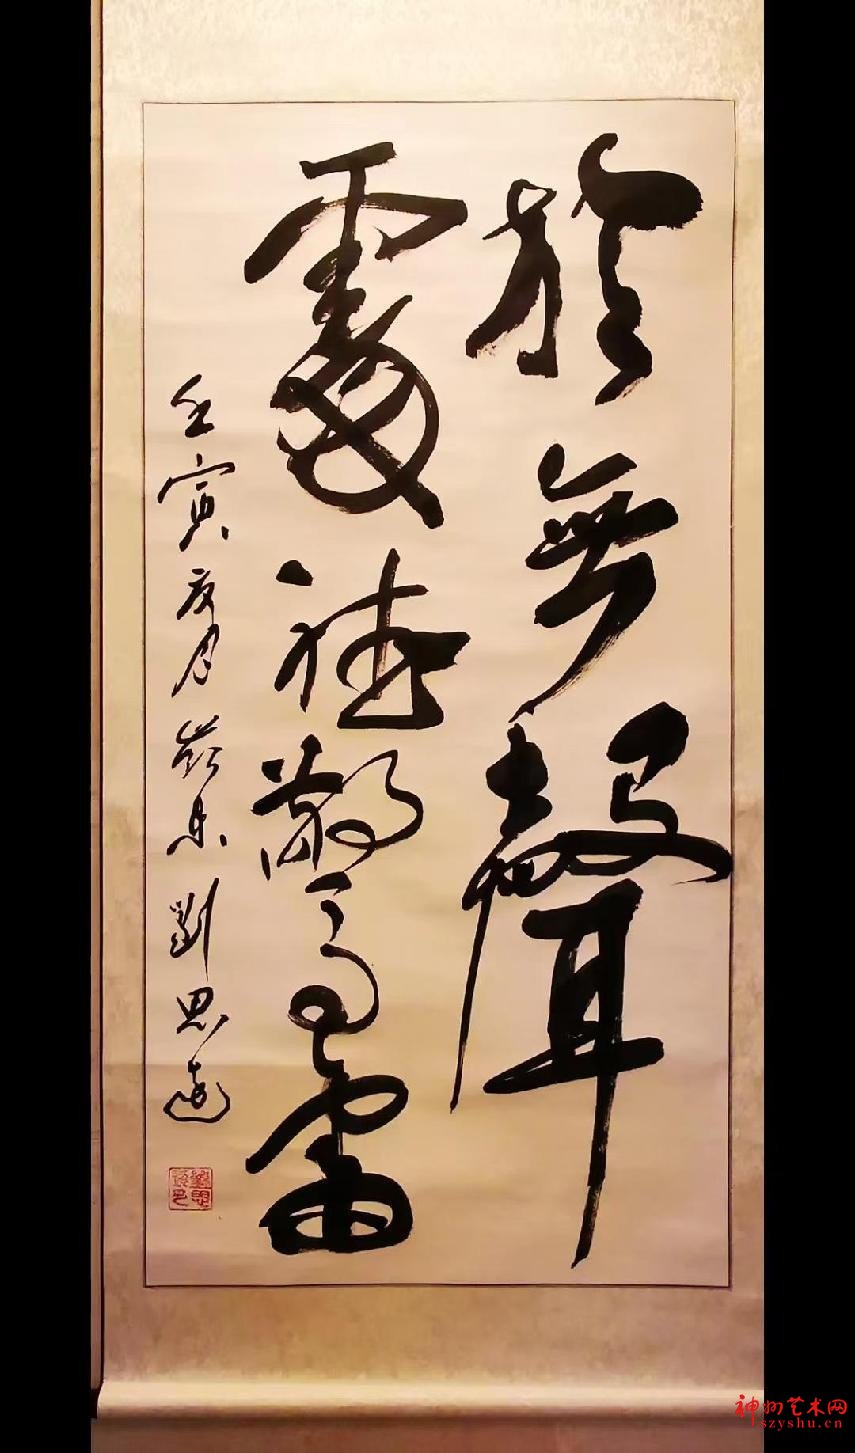 於無聲
處聽驚雷
壬寅夏月 劉思遠
神州艺术网
szyshu.cn